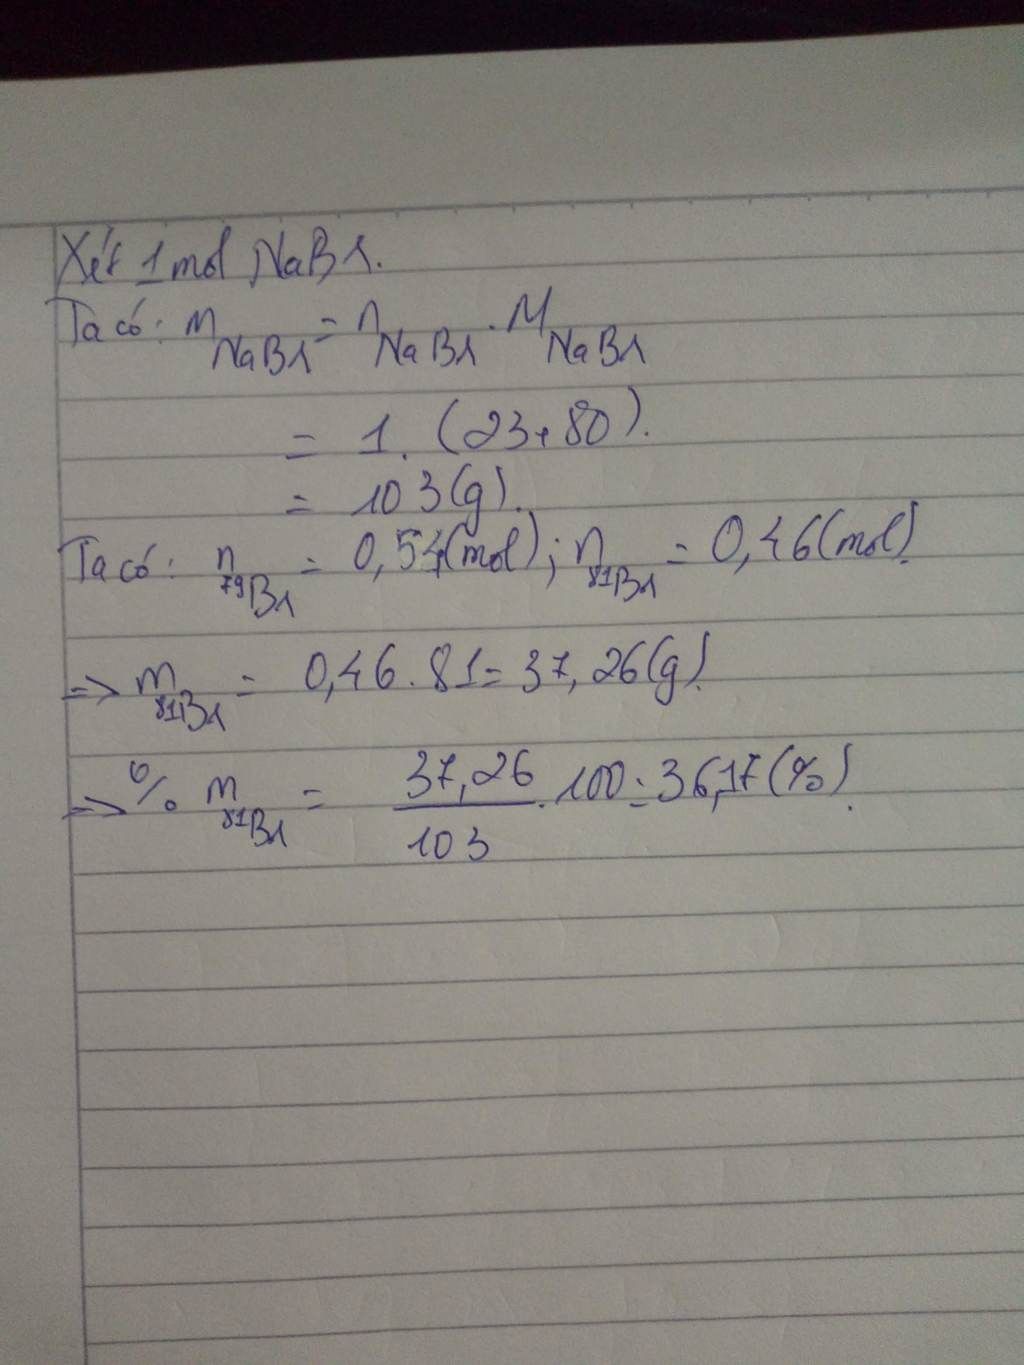 Xét 1 mol NaBr.
Ta có: m NaBr = n NaBr . M NaBr
= 1. (23+80).
= 103(g).
Ta có: n 79Br = 0,54(mol); n 81Br = 0,46(mol).
=> m 81Br = 0,46.81= 37,26(g).
=> % m 81Br = 37,26/103 .100=36,17(%).